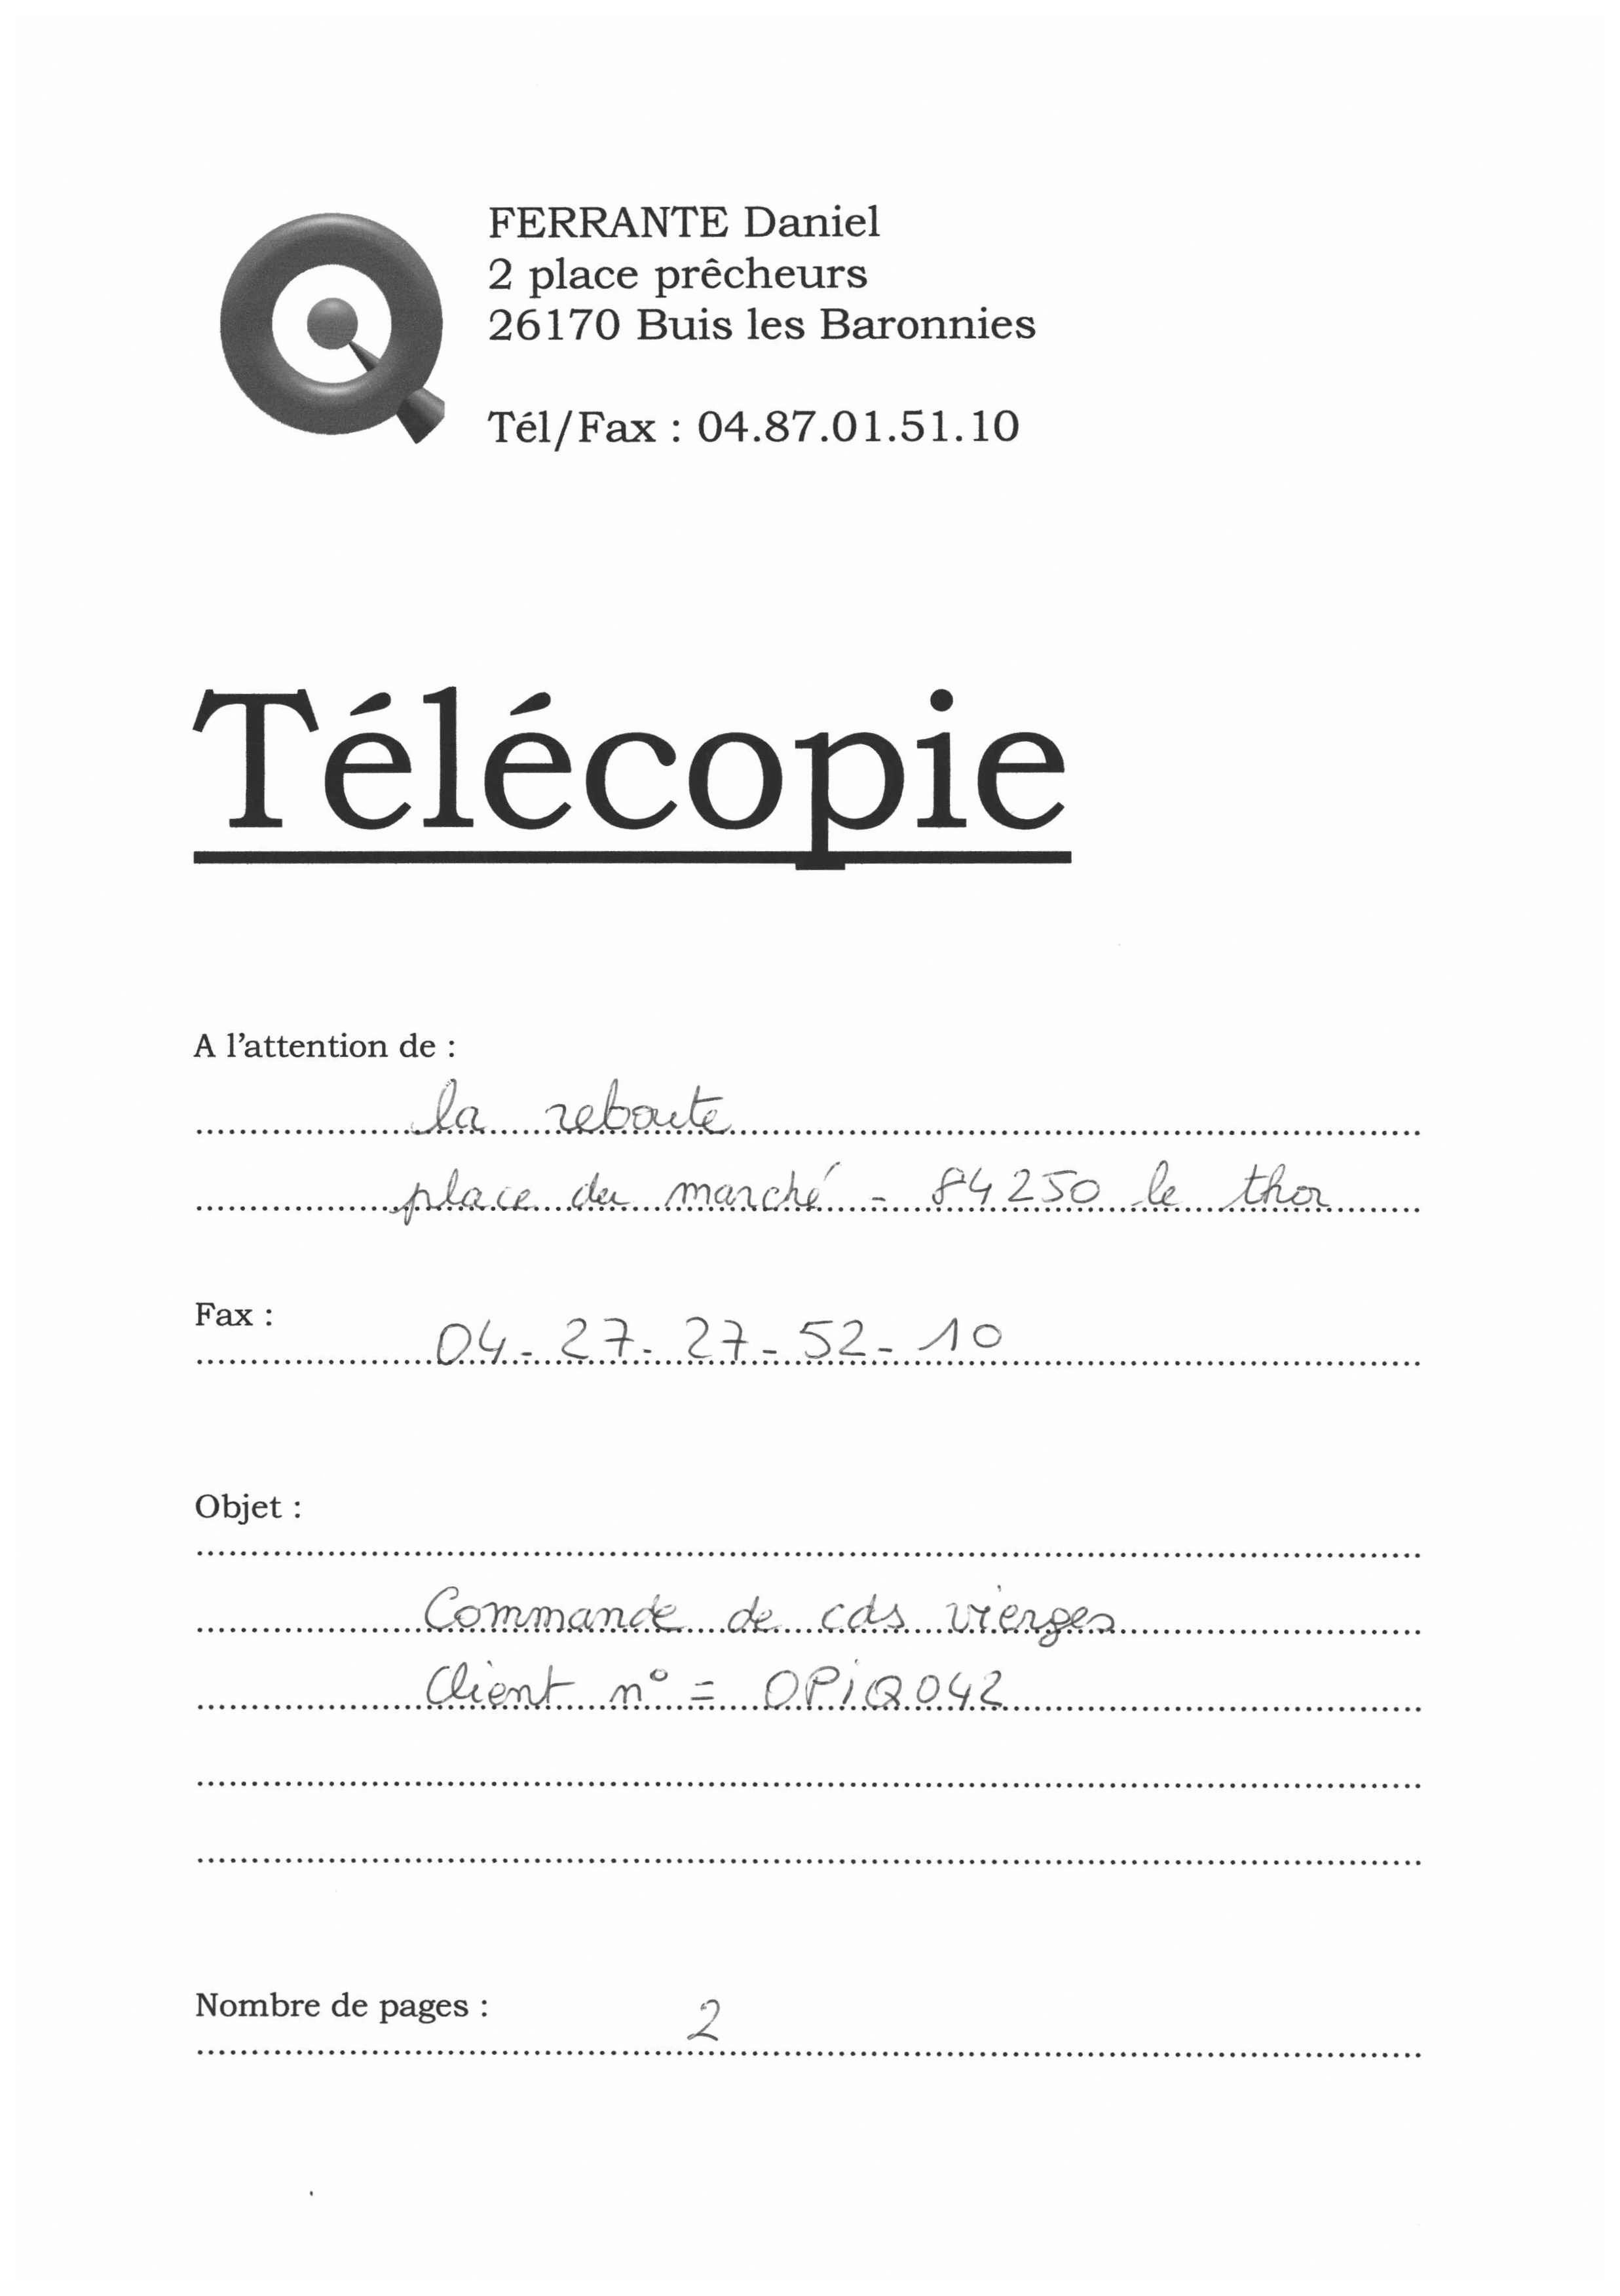 FERRANTE Daniel
2 place prêcheurs
26170 Buis les Baronnies
Tél/Fax : 04.87.01.51.10
Télécopie
A l'attention de :
la reboute
place du marché - 84250 le thor
Fax :
04-27-27-52-10
Objet :
Commande de cds vierges
Client n° = OPiQ042
Nombre de pages :
2